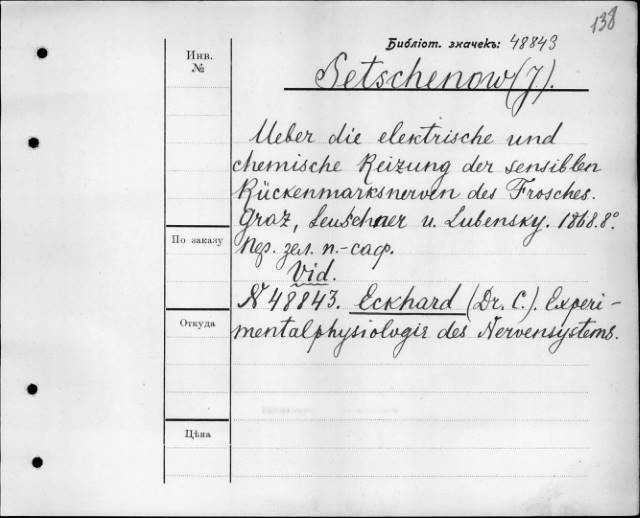 138
Библіот. значекъ: 48843
Инв.
№
Setschenow (J).
Ueber die elektrische und
chemische Reizung der sensiblen
Rückenmarksnerven des Frosches.
Graz, Leuschner u. Lubensky. 1868. 8°.
По заказу
Пер. зел. п.-саф.
Vid.
N 48843. Eckhard (Dr. C.). Experi-
Откуда
mentalphysiologie des Nervensystems.
Цѣна